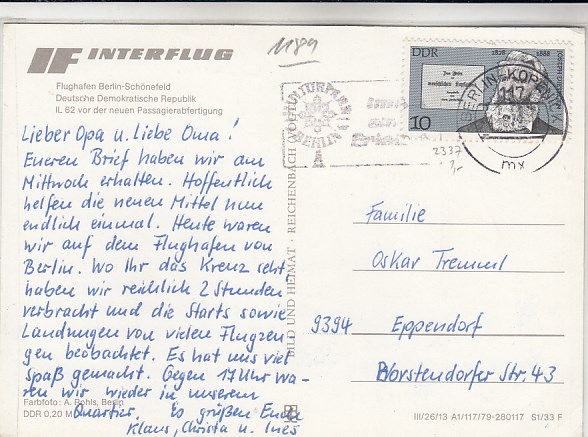 INTERFLUG
Flughafen Berlin-Schönefeld
Deutsche Demokratische Republik
IL 62 vor der neuen Passagierabfertigung
1189
DDR 1828 1888
10
BERLIN-KÖPENICK
KULTURPARK
BERLIN
2337
mx
Lieber Opa u. Liebe Oma!
Eueren Brief haben wir am
Mittwoch erhalten. Hoffentlich
helfen die neuen Mittel nun
endlich einmal. Heute waren
wir auf dem Flughafen von
Berlin. Wo Ihr das Kreuz seht
haben wir reichlich 2 Stunden
verbracht und die Starts sowie
Landungen von vielen Flugzeu
gen beobachtet. Es hat uns viel
Spaß gemacht. Gegen 17 Uhr wa-
ren wir wieder in unserem
Quartier. Es grüßen Euch
Klaus, Christa u. Ines
Farbfoto: A. Rohls, Berlin
DDR 0,20 M
BILD UND HEIMAT · REICHENBACH (VOGTL)
Familie
Oskar Tremml
9394 Eppendorf
Borstendorfer Str. 43
III/26/13 A1/117/79-280117 S1/33 F